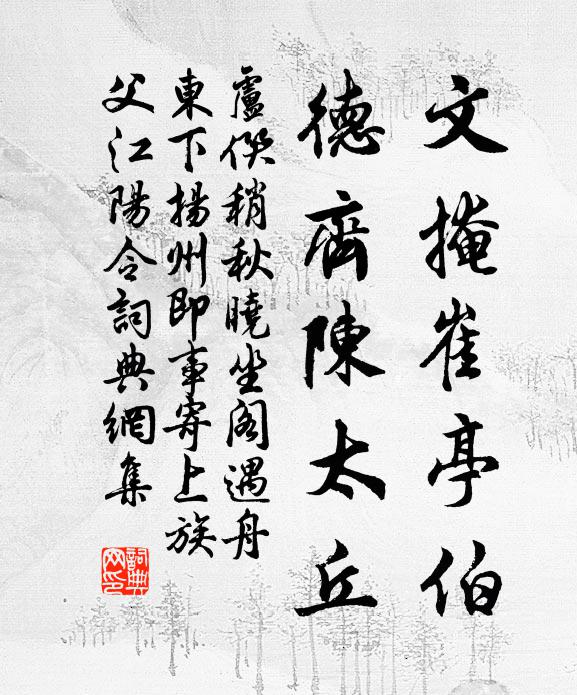 文掩崔亭伯
德齊陳太丘
盧傑稍秋曉坐閣遇舟
東下揚州即事寄上族
父江陽令詞典網集
詞典
网印